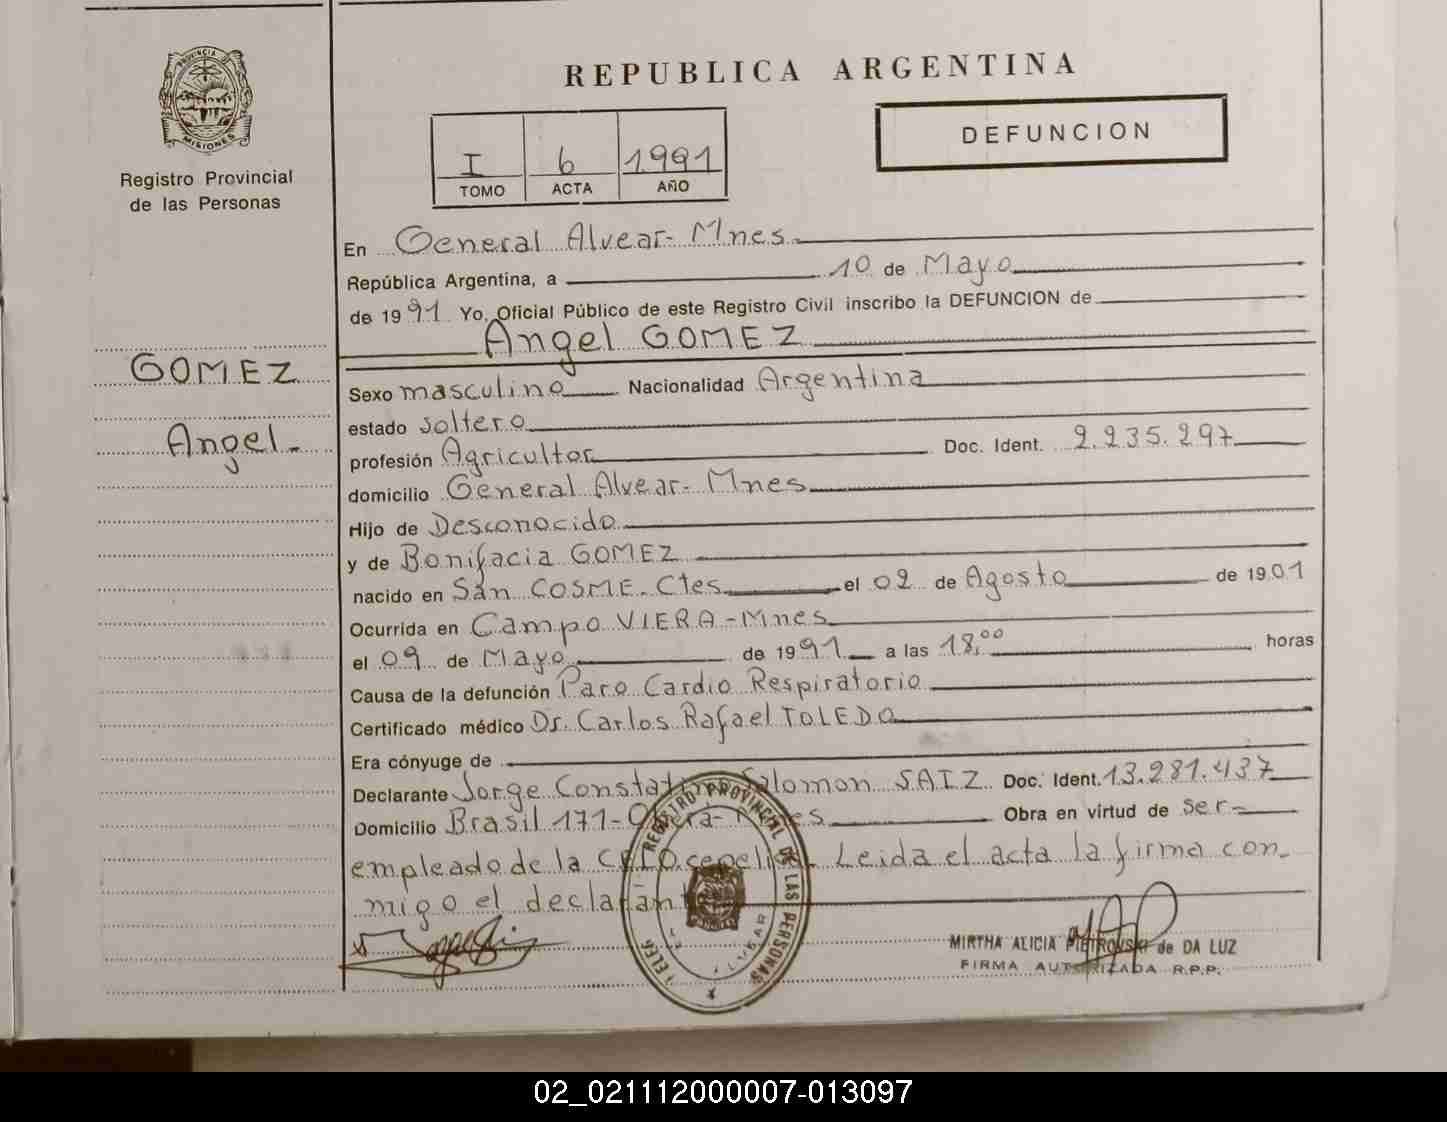 PROVINCIA DE
MISIONES
Registro Provincial
de las Personas
GOMEZ
Angel.-
REPUBLICA ARGENTINA
DEFUNCION
I 6 1991
TOMO ACTA AÑO
En General Alvear- Mnes.
República Argentina, a 10 de Mayo
de 1991 Yo, Oficial Público de este Registro Civil inscribo la DEFUNCION de
Angel GOMEZ
Sexo masculino Nacionalidad Argentina
estado soltero
profesión Agricultor Doc. Ident. 2.235.297
domicilio General Alvear- Mnes
Hijo de Desconocido
y de Bonifacia GOMEZ
nacido en San COSME. Ctes el 02 de Agosto de 1901
Ocurrida en Campo VIERA-Mnes
el 09 de Mayo de 1991 a las 18,00 horas
Causa de la defunción Paro Cardio Respiratorio
Certificado médico Dr. Carlos Rafael TOLEDO
Era cónyuge de
Declarante Jorge Salomon SAIZ Doc. Ident. 13.281.437
Domicilio Brasil 171- Obra en virtud de ser-
empleado de la Leida el acta la firma con-
migo el declarant
REGISTRO PROVINCIAL DE LAS PERSONAS
MIRTHA ALICIA PIETROVSKI de DA LUZ
FIRMA AUTORIZADA R.P.P.
02_021112000007-013097